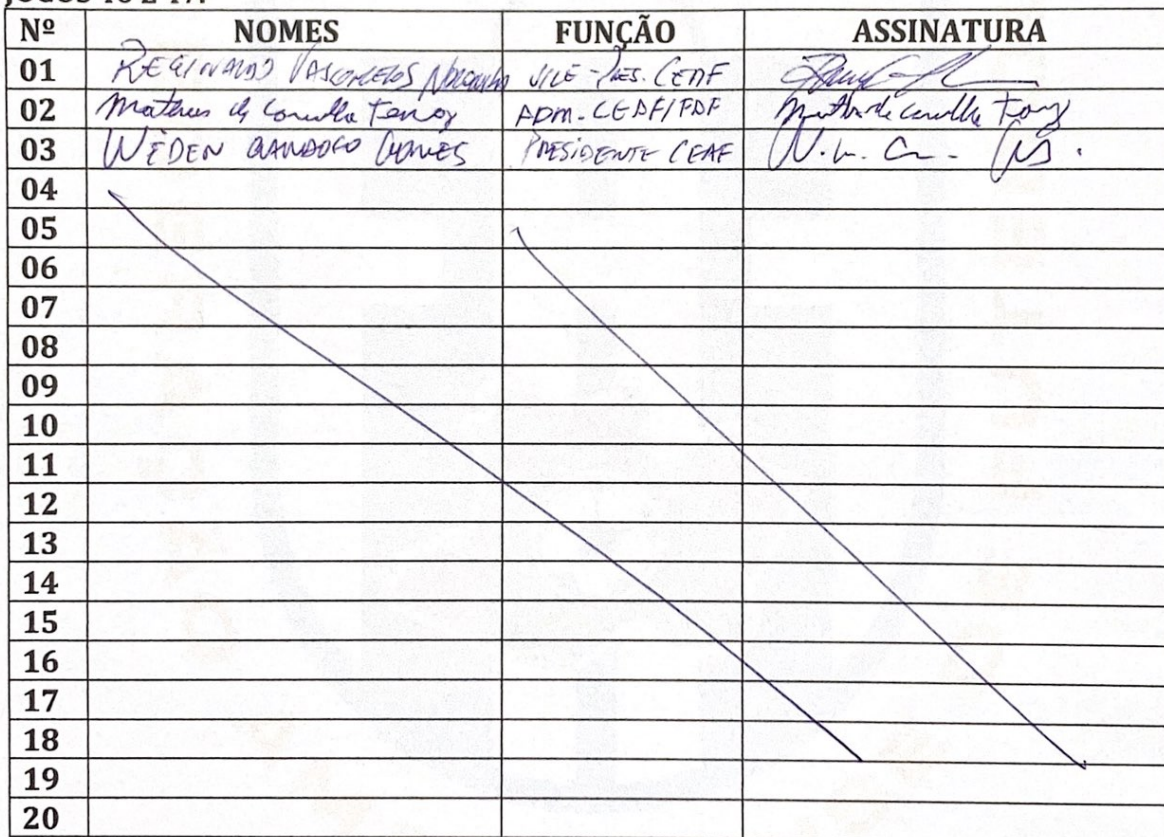 Nº NOMES FUNÇÃO ASSINATURA
01 REGINALDO VASCONCELOS VICE-PRES. CEAF
02 Matheus de Carvalho ADM. CEAF/FDF Matheus de Carvalho
03 WEDEN GOMES PRESIDENTE CEAF
04
05
06
07
08
09
10
11
12
13
14
15
16
17
18
19
20